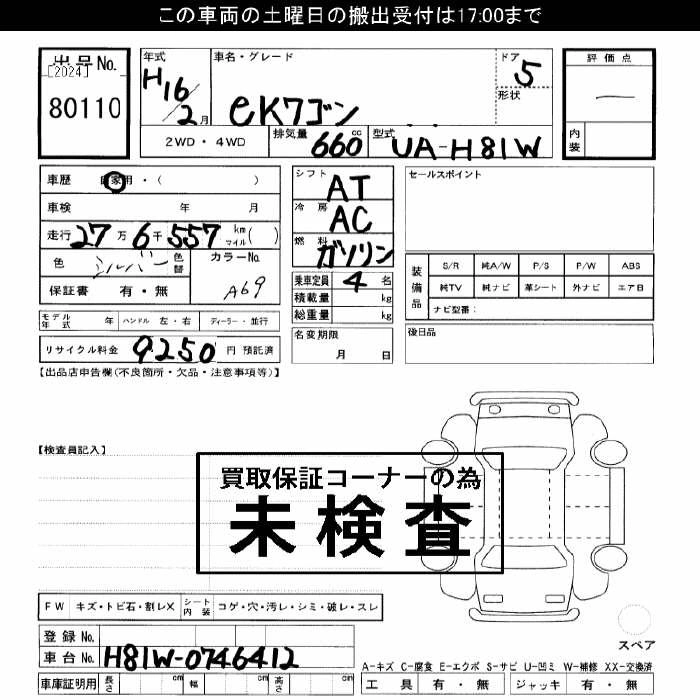 この車両の土曜日の搬出受付は17:00まで
出品No.
[2024]
80110
年式
H16/2月
車名・グレード
eKワゴン
ドア
5
形状
評価点
―
内装
2WD・4WD
排気量 660 cc
型式 UA-H81W
車歴 自家用・( )
車検 年 月
走行 27万6千557 km マイル( )
色 シルバー 色替
カラーNo. A69
保証書 有・無
モデル年式 年 ハンドル 左・右 ディーラー・並行
リサイクル料金 9250 円 預託済
シフト AT
冷房 AC
燃料 ガソリン
乗車定員 4 名
積載量 kg
総重量 kg
名変期限
月 日
セールスポイント
装備品
S/R 純A/W P/S P/W ABS
純TV 純ナビ 革シート 外ナビ エアB
ナビ型番:
後日品
【出品店申告欄(不良箇所・欠品・注意事項等)】
【検査員記入】
買取保証コーナーの為
未検査
FW キズ・トビ石・割レX シート内装 コゲ・穴・汚レ・シミ・破レ・スレ
登録No.
車台No. H81W-0746412
車庫証明用 長さ cm 幅 cm 高さ cm
スペア
A-キズ C-腐食 E-エクボ S-サビ U-凹ミ W-補修 XX-交換済
工具 有・無 ジャッキ 有・無